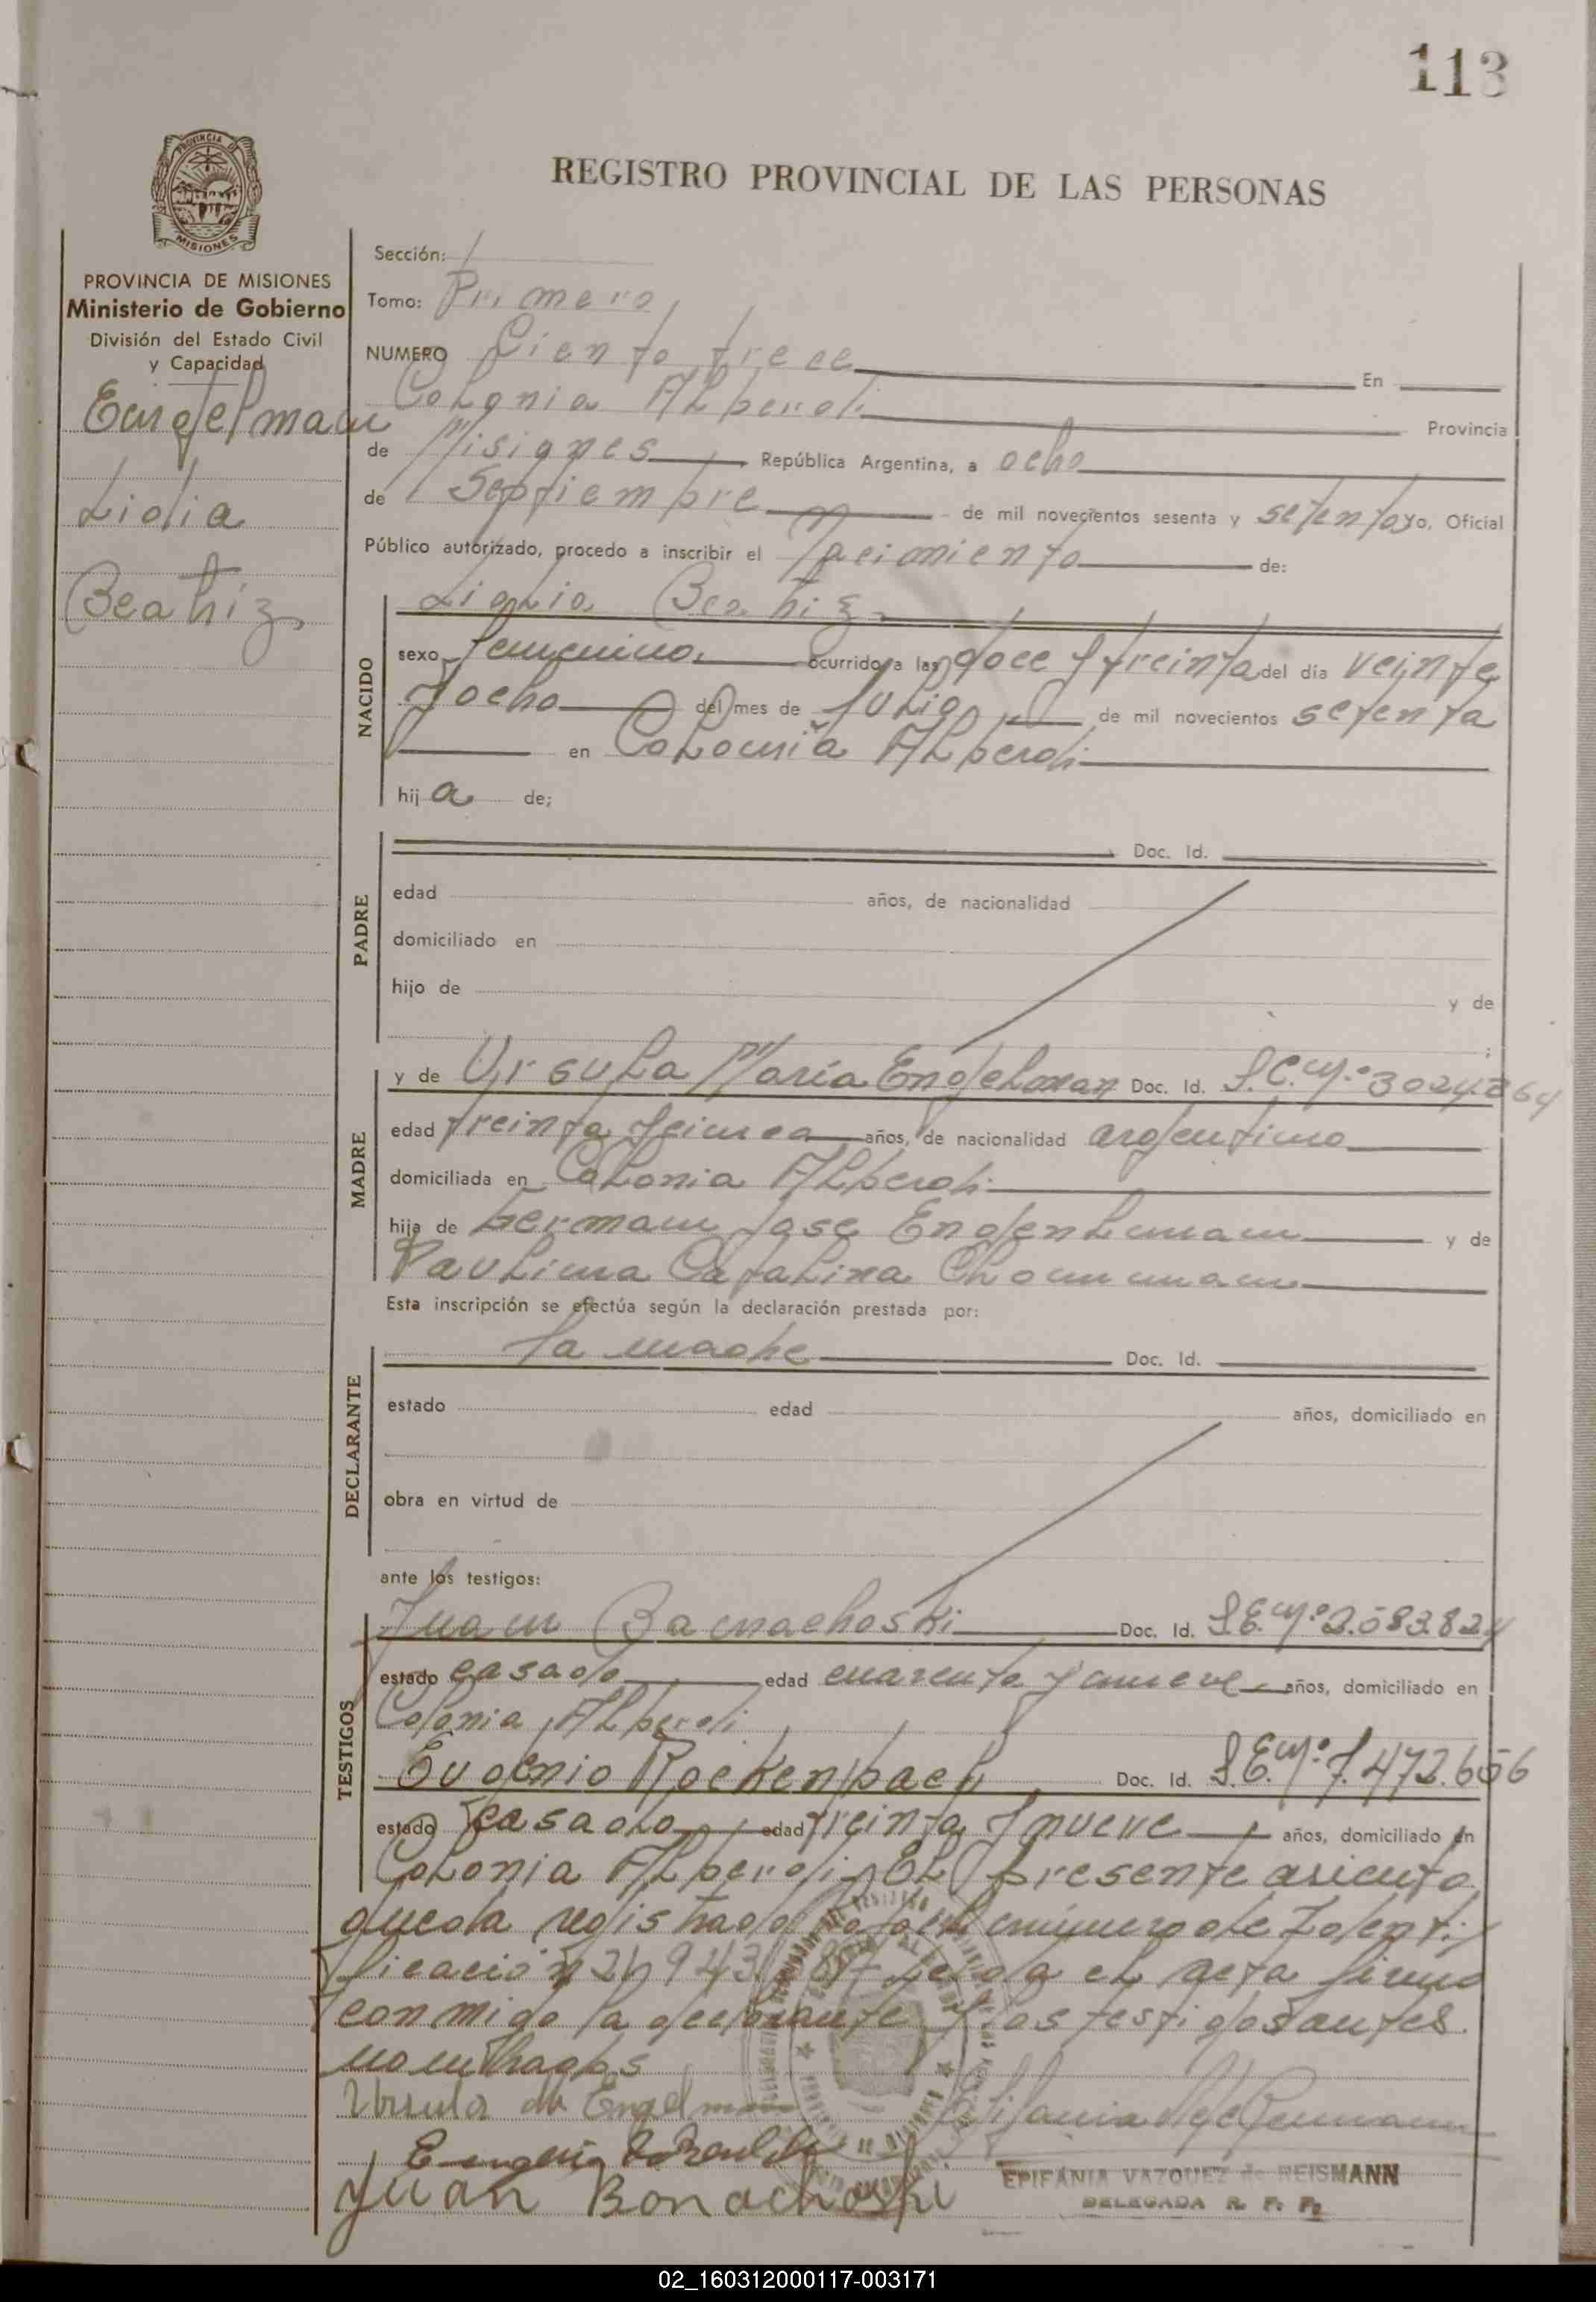 113
PROVINCIA DE MISIONES
REGISTRO PROVINCIAL DE LAS PERSONAS
PROVINCIA DE MISIONES
Ministerio de Gobierno
División del Estado Civil
y Capacidad
Engelmann
Lidia
Beatriz
Sección: 1
Tomo: Primero
NUMERO Ciento trece En
Colonia Alberdi Provincia
de Misiones República Argentina, a ocho
de Septiembre de mil novecientos sesenta y setenta yo, Oficial
Público autorizado, procedo a inscribir el Nacimiento de:
NACIDO
Lidia Beatriz
sexo femenino ocurrido a las doce y treinta del día veinte
y ocho del mes de Julio de mil novecientos setenta
en Colonia Alberdi
hija de;
PADRE
Doc. Id.
edad años, de nacionalidad
domiciliado en
hijo de y de
;
MADRE
y de Ursula María Engelman Doc. Id. L.C.Nº 3024.864
edad treinta años, de nacionalidad argentina
domiciliada en Colonia Alberdi
hija de German Jose y de
Paulina Catalina
Esta inscripción se efectúa según la declaración prestada por:
DECLARANTE
la madre Doc. Id.
estado edad años, domiciliado en
obra en virtud de
ante los testigos:
TESTIGOS
Juan Bonachoski Doc. Id. L.E.Nº
estado casado edad cuarenta y nueve años, domiciliado en
Colonia Alberdi
Eugenio Rockenbach Doc. Id. L.E.Nº 7.472.656
estado casado edad treinta y nueve años, domiciliado en
Colonia Alberdi El presente asiento
queda registrado bajo el número de Identi
ficación 21.943.
conmigo la declarante y los testigos antes
nombrados
Ursula de Engelmann
Juan Bonachoski
EPIFANIA VAZQUEZ de REISMANN
DELEGADA R. P. P.
02_160312000117-003171